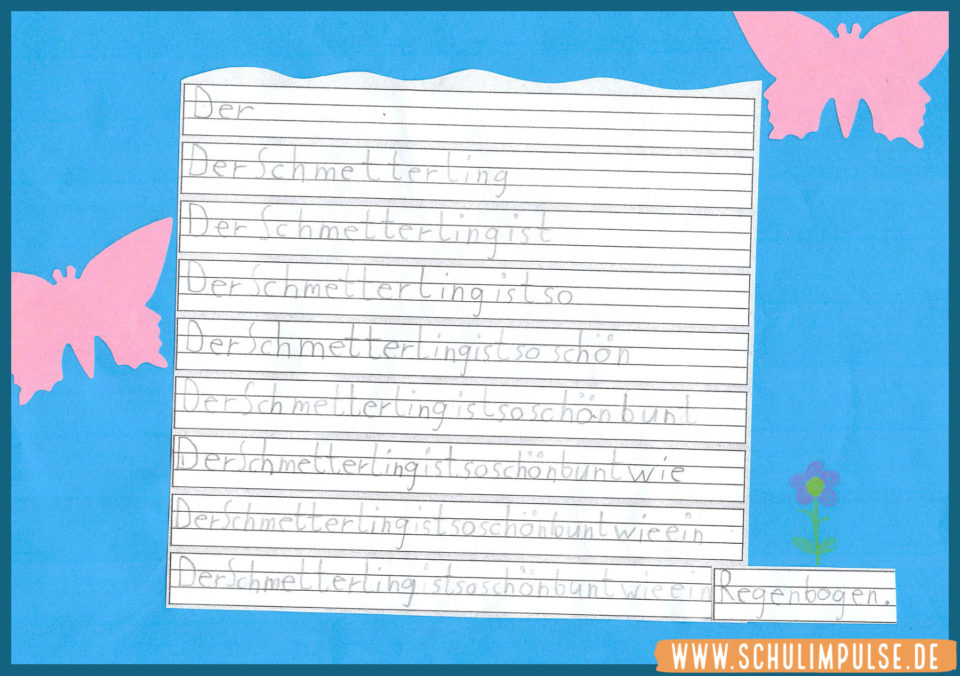 Der
Der Schmetterling
Der Schmetterling ist
Der Schmetterling ist so
Der Schmetterling ist so schön
Der Schmetterling ist so schön bunt
Der Schmetterling ist so schön bunt wie
Der Schmetterling ist so schön bunt wie ein
Der Schmetterling ist so schön bunt wie ein Regenbogen.
WWW.SCHULIMPULSE.DE